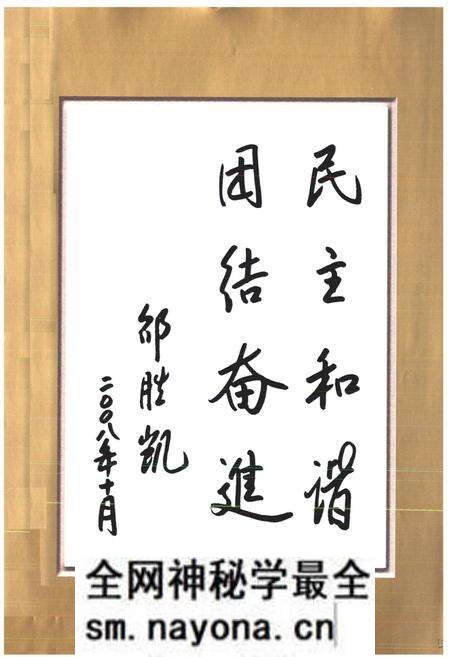 民主和谐
团结奋進
邵胜凯
二〇〇八年十月
全网神秘学最全
sm.nayona.cn